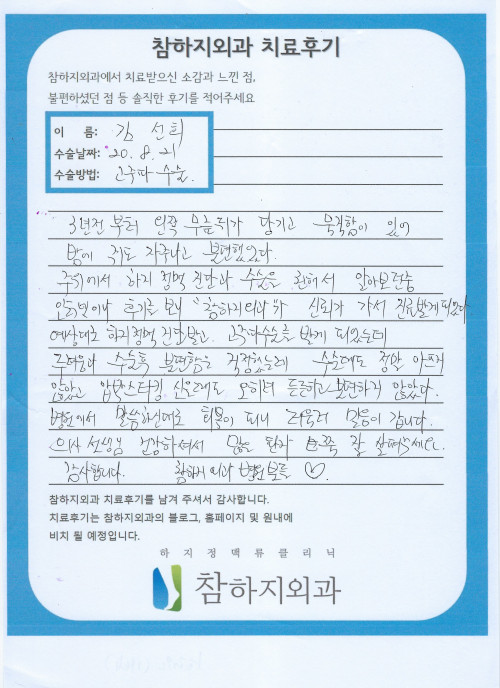 참하지외과 치료후기
참하지외과에서 치료받으신 소감과 느낀 점,
불편하셨던 점 등 솔직한 후기를 적어주세요
이 름: 김 선희
수술날짜: 20. 8. 21
수술방법: 고주파 수술.
3년전 부터 왼쪽 무릎뒤가 당기고 묵직함이 있어
밤에 쥐도 자주나고 불편했었다.
주위에서 하지 정맥 진단과 수술을 권해서 알아보던중
후기를 보니 "참하지외과"가 신뢰가 가서 진료받게되었다
예상대로 하지정맥 진단받고. 고주파수술을 받게 되었는데
수술후 불편함을 걱정했는데 수술때도 정말 아프지
않았고 압박스타킹 신으래도 오히려 든든하고 불편하지 않았다.
병원에서 말씀하신대로 회복이 되니 더욱더 믿음이 갑니다.
의사 선생님 건강하셔서 많은 환자 잘 살펴주세요.
감사합니다. 참하지 외과 병원분들 ♡.
참하지외과 치료후기를 남겨 주셔서 감사합니다.
치료후기는 참하지외과의 블로그, 홈페이지 및 원내에
비치 될 예정입니다.
하지정맥류클리닉
참하지외과